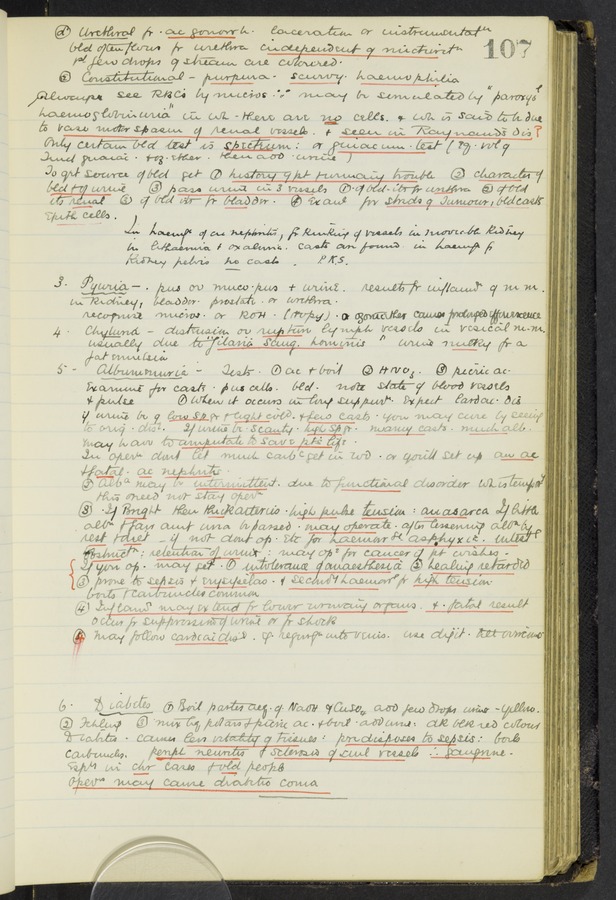 107
(d) Urethral fr. ac gonorrh. laceration or instrumentatn
bld often flows fr urethra independent of micturitn
1st few drops of stream are coloured.
(e) Constitutional - purpura. scurvy. haemophilia
Always see RBC's by micros ∵ may be simulated by "paroxysl
haemoglobinuria" in wh. there are no cells. & wh is said to be due
to vaso motor spasm of renal vessels. & seen in Raynaud's Dis?
Only certain bld test is spectrum: or guiacum. test
Tinct guaiac. + oz. ether. then add urine
To get source of bld get (1) history of pt urinary trouble (2) character of
bld & of urine (3) pass urine in 3 vessels (1) if bld. its fr urethra (2) if bld
its renal (3) if bld its fr bladder. (4) Exam for shreds of Tumour, bld casts
Epith cells.
In haemg of ac nephritis, fr kinking of vessels in moveable kidney
in lithaemia & oxaluria. casts are found in haemg fr
kidney pelvis no casts. P.K.S.
3. Pyuria -. pus or muco-pus & urine. results fr inflamn of m.m.
in kidney, bladder. prostate. or urethra.
recognise micros. or KOH. (ropy).
4. Chyluria - distension or rupture lymph vessels in vesical m.m.
usually due to "filaria sang. hominis" urine milky fr a
fat emulsion
5 - Albuminuria - Tests. (1) ac & boil (2) HNO3. (3) picric ac.
Examine for casts. pus cells. bld. note state of blood vessels
& pulse (1) When it occurs in long suppurn. Expect lardac. Dis
if urine be of low Sp.gr & light cold. & few casts. you may cure by seeing
to orig. disse. If urine be scanty. high Sp.gr. many casts. much alb.
may have to amputate to save pts life.
In opern dont let much carbc get in wd. or you'll set up an ac
& fatal. ac nephritis.
(2) Alba may be intermittent. due to functional disorder wh is temporary
this need not stay opern
(3) If Bright then thick arteries. high pulse tension: anasarca If little
albn & fair amt urea be passed. may operate. after lessening albn by
rest & diet - if not dont op. Etc for haemorr asphyxia. intestl
obstructn: retention of urine: may op. for cancer if pt wishes.
If you op. may get. (1) intolerance of anaesthesia (2) healing retarded
(3) prone to sepsis & erysipelas. & secondy haemorr fr high tension
boils & carbuncles common
(4) Inflamn may extend fr lower urinary organs. & fatal result
occur fr suppression of urine or fr shock
(5) may follow cardiac disse. & regurgn into veins. use digit.
6. Diabetes (1) Boil parts aeq. of NaOH & CuSO4 add few drops urine - yellow.
(2) Fehling (3) mix liq potass & picric ac. & boil. add urine: dk blk red colour
Diabetes. causes less vitality of tissues: predisposes to sepsis: boils
carbuncles. periph neuritis & sclerosis of small vessels ∴ gangrene.
Espy in chr cases & old people
Opern may cause diabetic coma